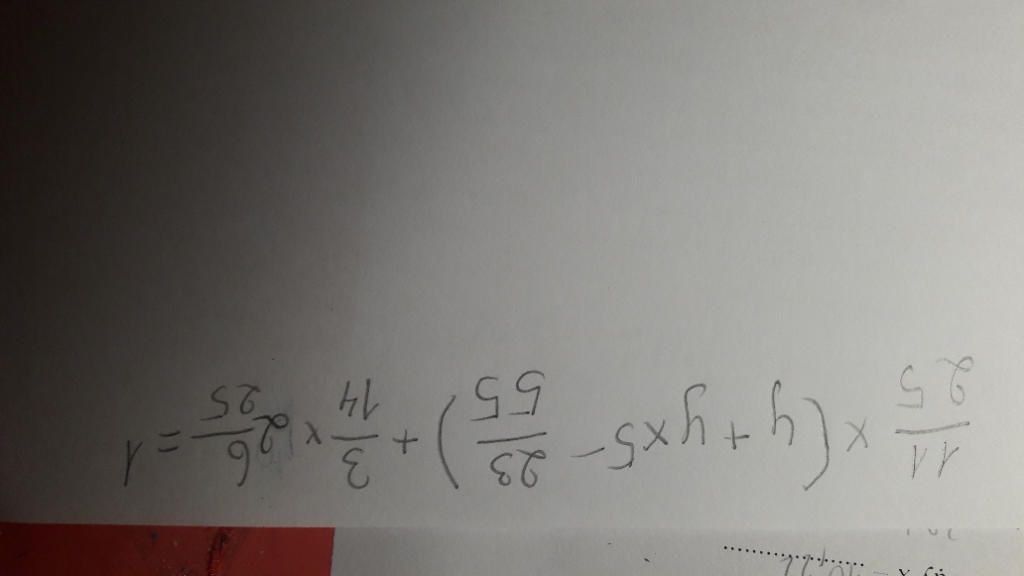 11/25 × (y + y × 5 - 23/55) + 3/14 × 2 6/25 = 1